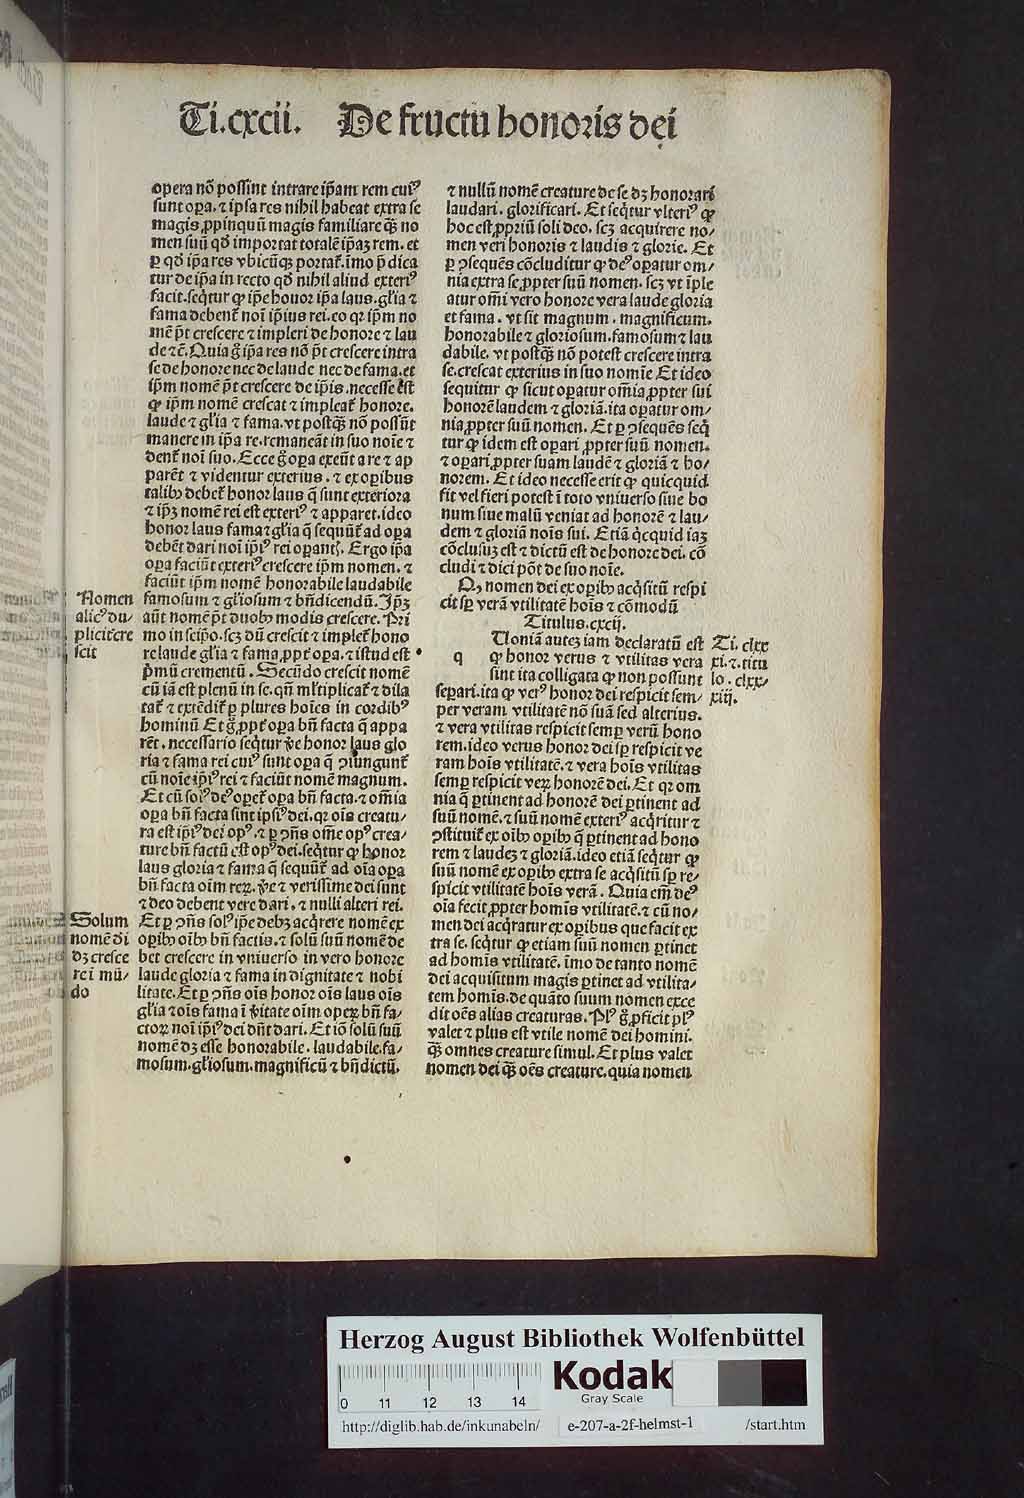 Ti.cxcii. De fructu honoris dei
opera nõ possint intrare ip̃am rem cuiꝰ
sunt oꝑa. ⁊ ipsa res nihil habeat extra se
magis ꝓpinquũ magis familiare q̃ꝫ no
men suũ qđ importat totalẽ ip̃aꝫ rem. et
ꝑ qđ ip̃a res vbicũqꝫ portat̃. imo p̃ dica
tur de ip̃a in recto qđ nihil aliud exteriꝰ
facit. seq̃tur ꝙ ip̃e honor ip̃a laus. gl̃ia ⁊
fama debent̃ noĩ ip̃ius rei. eo qr ip̃m no
mẽ p̃t crescere ⁊ impleri de honore ⁊ lau
de ⁊c̃. Quia g̃ ip̃a res nõ p̃t crescere intra
se de honore nec de laude nec de fama. et
ip̃m nomẽ p̃t crescere de ip̃is. necesse est
ꝙ ip̃m nomẽ crescat ⁊ impleat̃ honore.
laude ⁊ gl̃ia ⁊ fama. vt postq̃ꝫ nõ possũt
manere in ip̃a re. remaneãt in suo noĩe ⁊
dent̃ noĩ suo. Ecce g̃ oꝑa exeũt a re ⁊ ap
parẽt ⁊ videntur exterius. ⁊ ex oꝑibus
talibꝫ debet̃ honor laus q̃ sunt exteriora
⁊ ip̃ꝫ nomẽ rei est exteriꝰ ⁊ apparet. ideo
honor laus fama ⁊ gl̃ia q̃ sequũt̃ ad oꝑa
debẽt dari noĩ ip̃iꝰ rei oꝑantꝭ. Ergo ip̃a
oꝑa faciũt exteriꝰ crescere ip̃m nomen. ⁊
faciũt ip̃m nomẽ honorabile laudabile
Nomen
alicꝰ du-
plicit̃ cre
scit
famosum ⁊ gl̃iosum ⁊ bñdicendũ. Ip̃ꝫ
aũt nomẽ p̃t duobꝫ modis crescere. Pri
mo in seip̃o. scꝫ dũ crescit ⁊ implet̃ hono
re laude gl̃ia ⁊ fama. ꝓpt̃ oꝑa. ⁊ istud est
p̃mũ crementũ. Secũdo crescit nomẽ
cũ iã est plenũ in se. qñ ml̃tiplicat̃ ⁊ dila
tat̃ ⁊ extẽdit̃ ꝑ plures hoĩes in cordibꝰ
hominũ Et g̃ ꝓpt̃ oꝑa bñ facta q̃ appa
rẽt. necessario seq̃tur ṽe honor laus glo
ria ⁊ fama rei cuiꝰ sunt oꝑa q̃ ꝯiungunt̃
cũ noĩe ip̃iꝰ rei ⁊ faciũt nomẽ magnum.
Et cũ soliꝰ deꝰ oꝑet̃ oꝑa bñ facta. ⁊ om̃ia
oꝑa bñ facta sint ip̃siꝰ dei. qr oĩs creatu-
ra est ip̃iꝰ dei opꝰ. ⁊ ꝑ ꝯñs om̃e opꝰ crea-
ture bñ factũ est opꝰ dei. seq̃tur ꝙ honor
laus gloria ⁊ fama q̃ sequũt̃ ad oĩa oꝑa
bñ facta oĩm reꝝ. ṽe ⁊ verissime dei sunt
⁊ deo debent vere dari. ⁊ nulli alteri rei.
Solum
nomẽ dĩ
dꝫ cresce
re ĩ mũ-
do
Et ꝑ ꝯñs solꝰ ip̃e debꝫ acq̃rere nomẽ ex
oꝑibꝫ oĩbꝫ bñ factis. ⁊ solũ suũ nomẽ de
bet crescere in vniuerso in vero honore
laude gloria ⁊ fama in dignitate ⁊ nobi
litate. Et ꝑ ꝯñs oĩs honor oĩs laus oĩs
gl̃ia ⁊ oĩs fama ĩ ṽitate oĩm oꝑeꝝ bñ fa-
ctoꝝ noĩ ip̃iꝰ dei dñt dari. Et iõ solũ suũ
nomẽ dꝫ esse honorabile. laudabile. fa-
mosum. gl̃iosum. magnificũ ⁊ bñdictũ.
⁊ nullũ nomẽ creature de se dꝫ honorari
laudari. glorificari. Et seq̃tur vlteriꝰ ꝙ
hoc est ꝓpriũ soli deo. scꝫ acquirere no-
men veri honoris ⁊ laudis ⁊ glorie. Et
ꝑ ꝯsequẽs cõcluditur ꝙ deꝰ oꝑatur om-
nia extra se ꝓpter suũ nomen. scꝫ vt ĩple
atur om̃i vero honore vera laude gloria
et fama. vt sit magnum. magnificum.
honorabile ⁊ gloriosum. famosum ⁊ lau
dabile. vt postq̃ꝫ nõ potest crescere intra
se. crescat exterius in suo nomĩe Et ideo
sequitur ꝙ sicut oꝑatur om̃ia ꝓpter sui
honorẽ laudem ⁊ gloriã. ita oꝑatur om-
nia ꝓpter suũ nomen. Et ꝑ ꝯsequẽs seq̃
tur ꝙ idem est oꝑari ꝓpter suũ nomen.
⁊ oꝑari ꝓpter suam laudẽ ⁊ gloriã ⁊ ho-
norem. Et ideo necesse erit ꝙ quicquid
fit vel fieri potest ĩ toto vniuerso siue bo
num siue malũ veniat ad honorẽ ⁊ lau-
dem ⁊ gloriã noĩs sui. Etiã q̃cquid iaꝫ
cõclusuꝫ est ⁊ dictũ est de honore dei. cõ
cludi ⁊ dici põt de suo noĩe.
Qꝫ nomen dei ex oꝑibꝫ acq̃sitũ respi
cit sꝑ verã vtilitatẽ hoĩs ⁊ cõmodũ
Titulus. cxcij.
q
Uoniã auteꝫ iam declaratũ est
ꝙ honor verus ⁊ vtilitas vera
sint ita colligata ꝙ non possunt
Ti. clxx
xi. ⁊. titu
lo. clxx-
xiij.
seꝑari. ita ꝙ verꝰ honor dei respicit sem-
per veram vtilitatẽ nõ suã sed alterius.
⁊ vera vtilitas respicit semꝑ verũ hono
rem. ideo verus honor dei sꝑ respicit ve
ram hoĩs vtilitatẽ. ⁊ vera hoĩs vtilitas
semꝑ respicit veꝝ honorẽ dei. Et qr om
nia q̃ ꝑtinent ad honorẽ dei ꝑtinent ad
suũ nomẽ. ⁊ suũ nomẽ exteriꝰ acq̃ritur ⁊
ꝯstituit̃ ex oĩbꝫ oꝑibꝫ q̃ ꝑtinent ad hono
rem ⁊ laudeꝫ ⁊ gloriã. ideo etiã seq̃tur ꝙ
suũ nomẽ ex oꝑibꝫ extra se acq̃sitũ sꝑ re-
spicit vtilitatẽ hoĩs verã. Quia em̃ deꝰ
oĩa fecit ꝓpter homĩs vtilitatẽ. ⁊ cũ no-
men dei acq̃ratur ex oꝑibus que facit ex
tra se. seq̃tur ꝙ etiam suũ nomen ꝑtinet
ad homĩs vtilitatẽ. ĩmo de tanto nomẽ
dei acquisitum magis ꝑtinet ad vtilita-
tem homĩs. de quãto suum nomen exce
dit oẽs alias creaturas. Plꝰ g̃ ꝓficit plꝰ
valet ⁊ plus est vtile nomẽ dei homini.
q̃ꝫ omnes creature simul. Et plus valet
nomen dei q̃ꝫ oẽs creature. quia nomen
Herzog August Bibliothek Wolfenbüttel
0 11 12 13 14
Kodak
Gray Scale
http://diglib.hab.de/inkunabeln/ e-207-a-2f-helmst-1 /start.htm